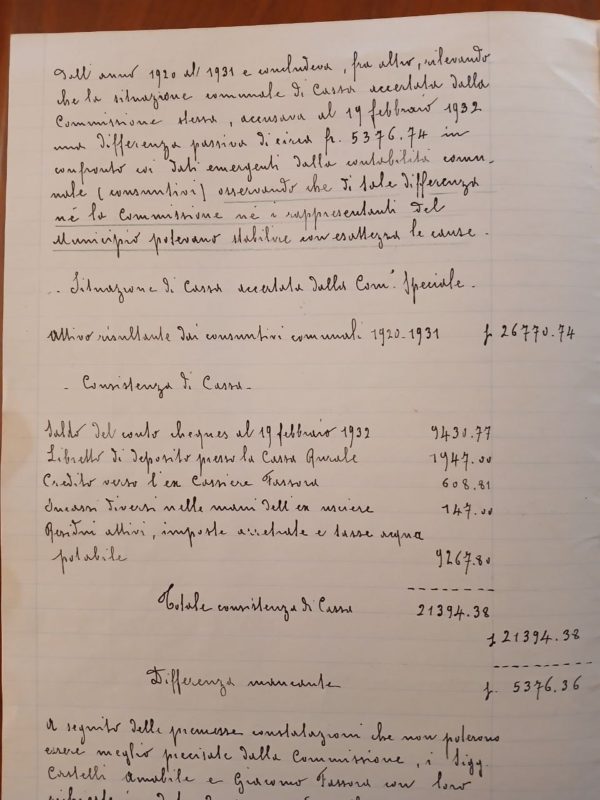 dall'anno 1920 al 1931 e concludeva, fra altro, rilevando
che la situazione comunale di Cassa accertata dalla
Commissione stessa, accusava al 19 febbraio 1932
una differenza passiva di circa fr. 5376.74 in
confronto coi dati emergenti dalla contabilità comu-
nale (consuntivi) osservando che di tale differenza
né la Commissione né i rappresentanti del
Municipio potevano stabilire con esattezza le cause.
-- Situazione di Cassa accertata dalla Com.e Speciale.
Attivo risultante dai consuntivi comunali 1920-1931 f 26770.74
- Consistenza di Cassa -
Saldo del conto cheques al 19 febbraio 1932 9430.77
Libretto di deposito presso la Cassa Rurale 1947.00
Credito verso l'ex Cassiere Fassora 608.81
Incassi diversi nelle mani dell'ex usciere 147.00
Residui attivi, imposte arretrate e tasse acqua
potabile 9267.80
Totale consistenza di Cassa 21394.38
f 21394.38
Differenza mancante f. 5376.36
A seguito delle premesse constatazioni che non poterono
essere meglio precisate dalla Commissione, i Sigg.
Castelli Amabile e Giacomo Fassora con loro